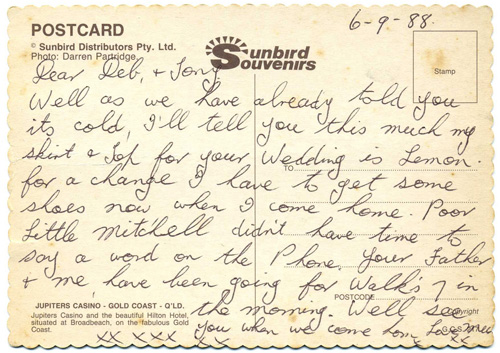 6-9-88.
POSTCARD
© Sunbird Distributors Pty. Ltd.
Photo: Darren Partridge.
Sunbird
Souvenirs
Stamp
Dear Deb, & Tony
Well as we have already told you
its cold, I'll tell you this much my
skirt & Top for your Wedding is Lemon.
TO
for a change I have to get some
shoes now when I come home. Poor
Little Mitchell didn't have time to
say a word on the Phone. Your Father
& me, have been going for Walk's 7 in
POSTCODE
the morning. Well, see
you when we come home Love
xx xxx xx xx
JUPITERS CASINO - GOLD COAST - Q'LD.
Jupiters Casino and the beautiful Hilton Hotel,
situated at Broadbeach, on the fabulous Gold
Coast.
Copyright